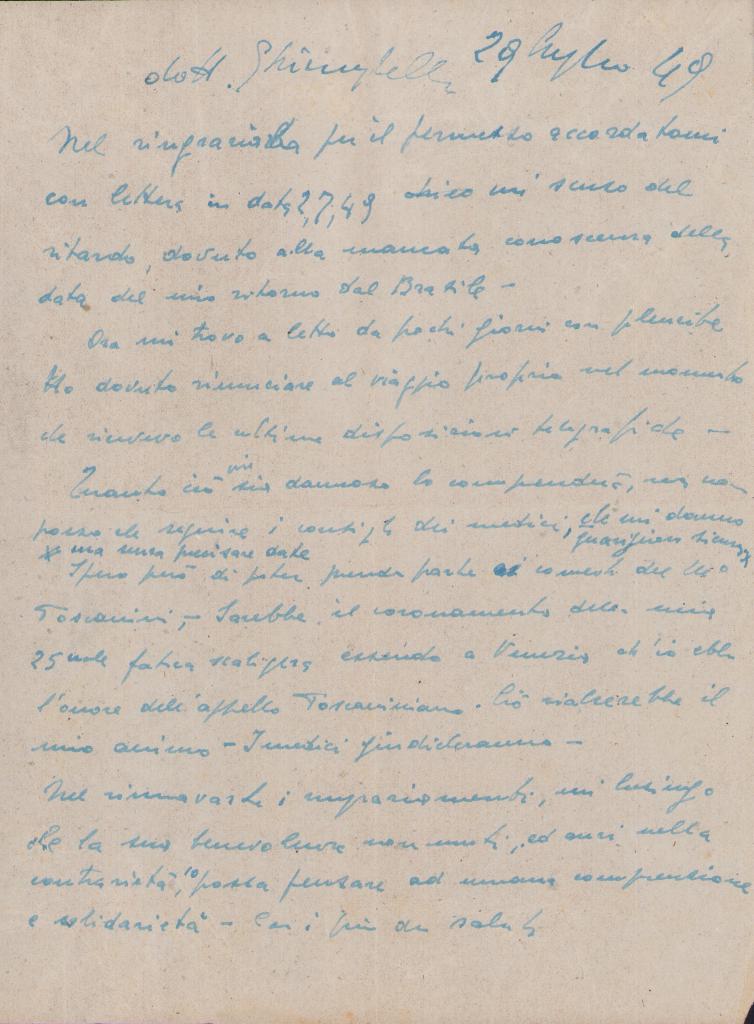 dott. Ghiringhelli 29 luglio 49
Nel ringraziarLa per il permesso accordatomi
con lettera in data 2,7,49 chieo mi scuso del
ritardo, dovuto alla mancata conoscenza della
data del mio ritorno dal Brasile -
Ora mi trovo a letto da pochi giorni con pleurite
Ho dovuto rinunciare al viaggio proprio nel momento
che ricevevo le ultime disposizioni telegrafiche -
Quanto ciò mi sia dannoso lo comprenderà, ma non
posso che seguire i consigli dei medici, che mi danno
guarigione sicura
* ma senza precisare date
Spero però di poter prender parte ai concerti del M.o
Toscanini, - Sarebbe il coronamento della mia
25nnle fatica scaligera essendo a Venezia ch'io ebbi
l'onore dell'appello Toscaniniano. Ciò rialzerebbe il
mio animo - I medici giudicheranno -
Nel rinnovarLe i ringraziamenti, mi lusingo
che la sua benevolenza non muti, ed anzi nella
contrarietà, io possa pensare ad umana comprensione
e solidarietà - Con i più saluti